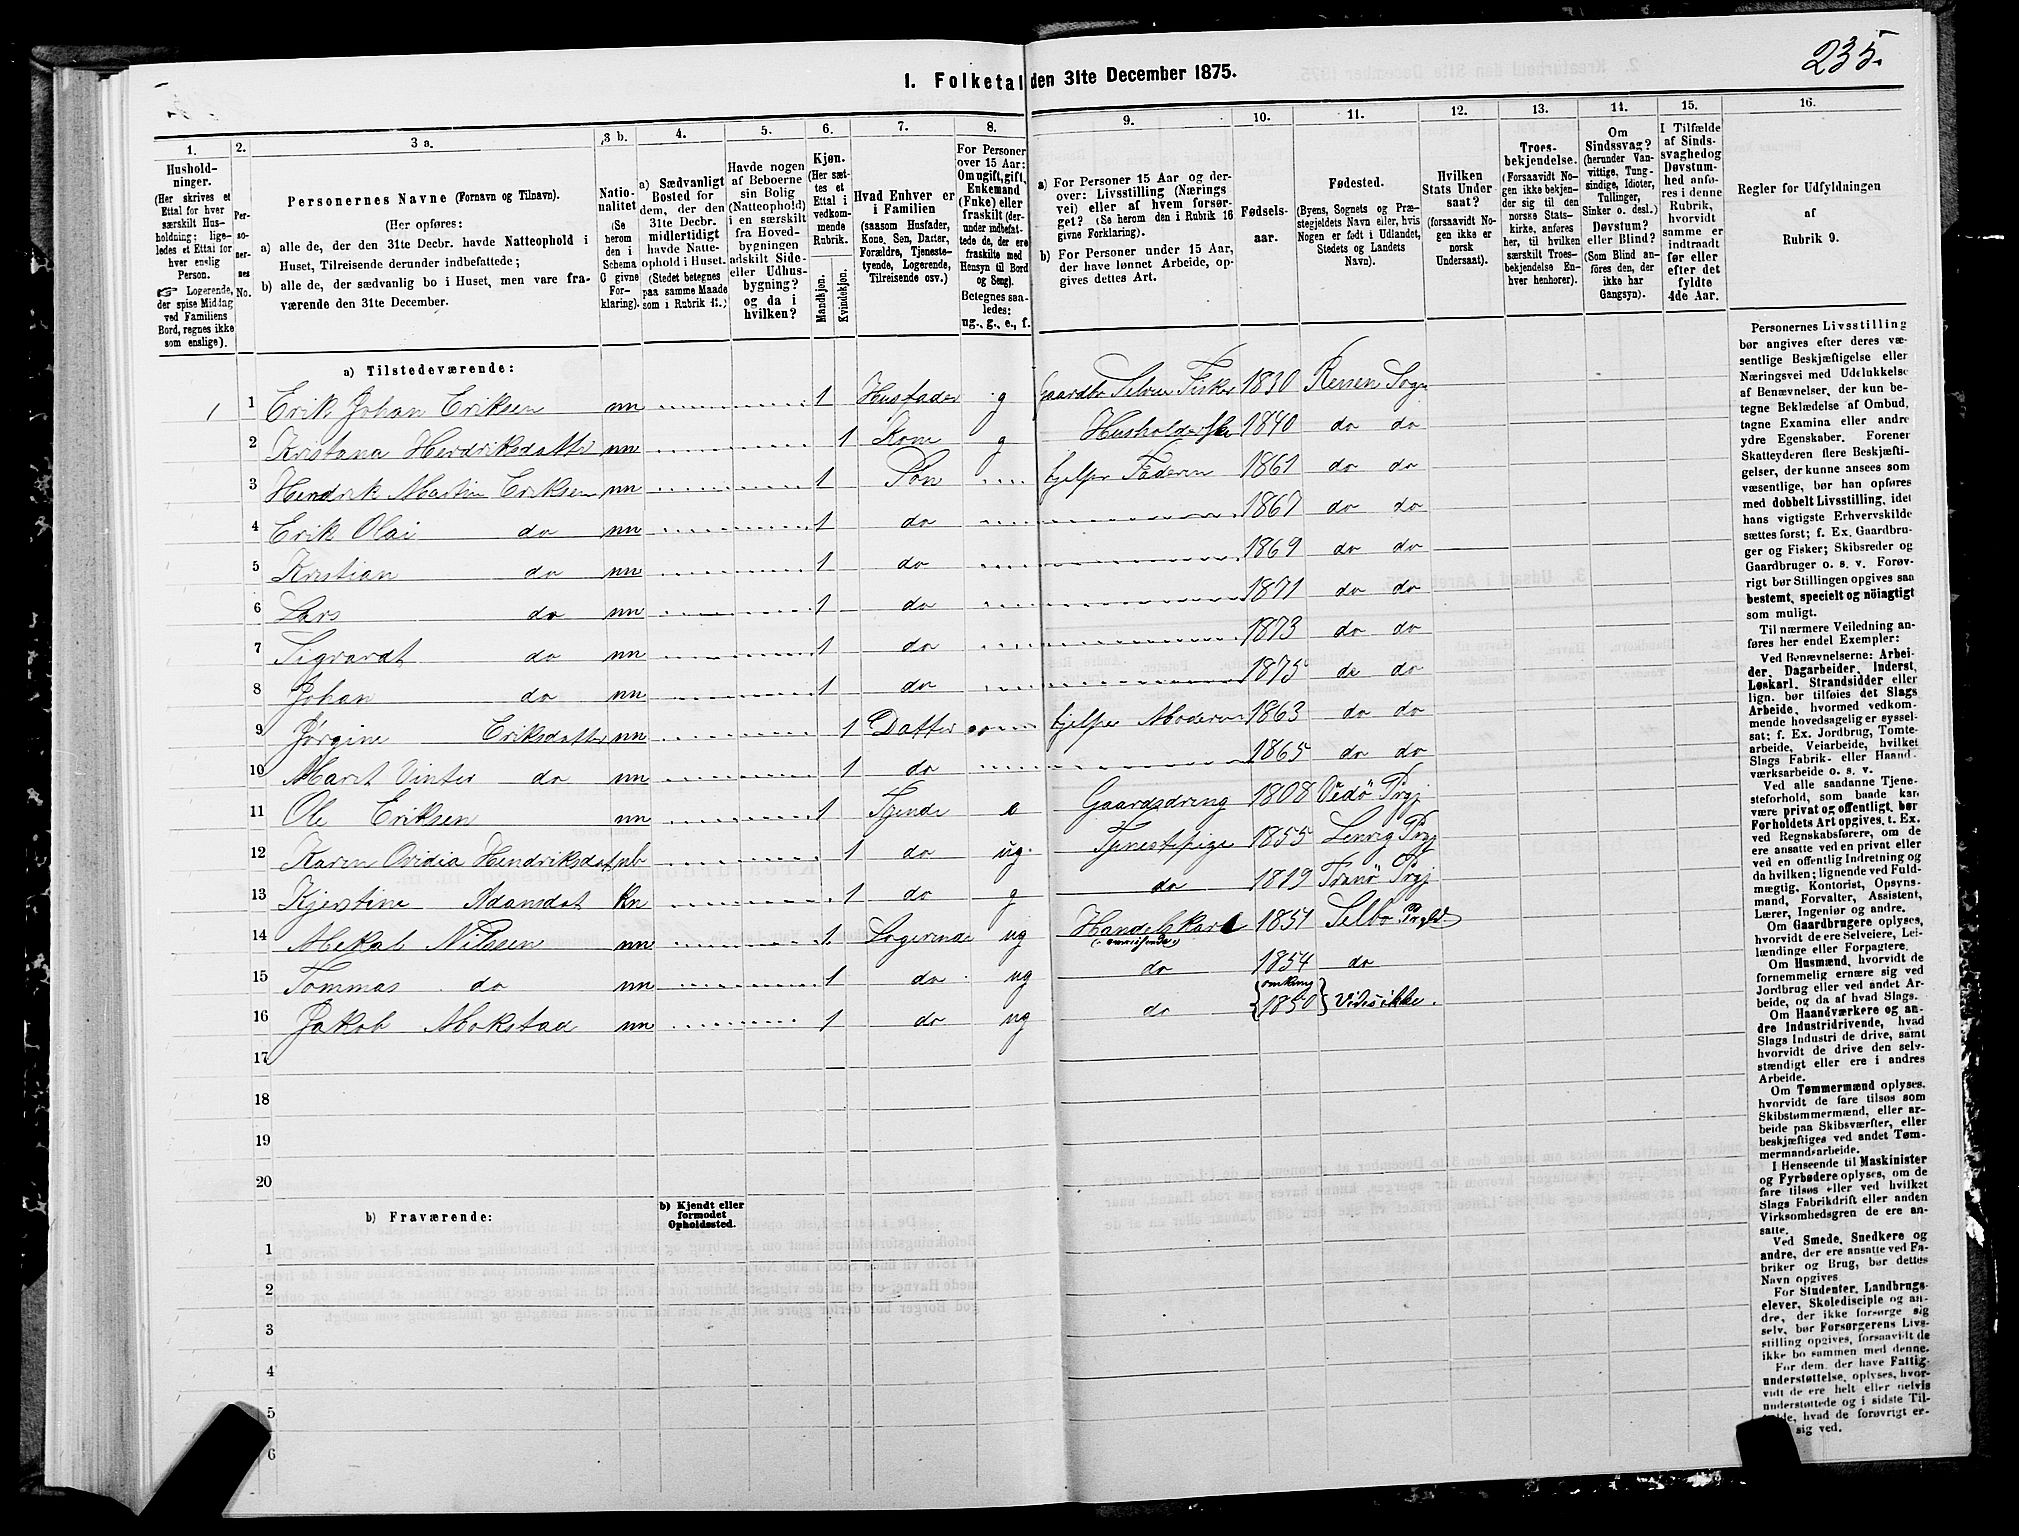 235.
1. Folketal den 31te December 1875.
1. 2. 3 a. 3 b. 4. 5. 6. 7. 8. 9. 10. 11. 12. 13. 14. 15. 16.
Hushold-
ninger.
(Her skrives et
Ettal for hver
særskilt Hus-
holdning; lige-
ledes et Ettal for
hver enslig
Person.
Logerende,
der spise Middag
ved Familiens
Bord, regnes ikke
som enslige).
Per-
so-
ner-
nes
No.
Personernes Navne (Fornavn og Tilnavn).
(Her opføres:
a) alle de, der den 31te Decbr. havde Natteophold i
Huset, Tilreisende derunder indbefattede;
b) alle de, der sædvanlig bo i Huset, men vare fra-
værende den 31te December.
Natio-
nalitet
(Se
herom
den i
Schema
O givne
For-
klaring).
a) Sædvanligt
Bosted for
dem, der den
31te Decbr.
midlertidigt
havde Natte-
ophold i Huset.
(Stedet betegnes
paa samme Maade
som i Rubrik 11.)
Havde nogen
af Beboerne
sin Bolig
(Natteophold)
i en særskilt
fra Hoved-
bygningen
adskilt Side-
eller Udhus-
bygning?
og da i
hvilken?
Kjøn.
(Her sæt-
tes et
Ettal i
vedkom-
mende
Rubrik.
Mandkjøn.
Kvindekjøn.
Hvad Enhver er
i Familien
(saasom Husfader,
Kone, Søn, Datter,
Forældre, Tjeneste-
tyende, Logerende,
Tilreisende osv.)
For Personer
over 15 Aar:
Om ugift, gift,
Enkemand
(Enke) eller
fraskilt (der-
under indbefat-
tede de, der ere
fraskilte med
Hensyn til Bord
og Seng).
Betegnes saa-
ledes:
ug., g., e., f.
a) For Personer 15 Aar og der-
over: Livsstilling (Nærings
vei) eller af hvem forsør-
get? (Se herom den i Rubrik 16
givne Forklaring).
b) For Personer under 15 Aar,
der have lønnet Arbeide, op-
gives dettes Art.
Fødsels-
aar.
Fødested.
(Byens, Sognets og Præ-
stegjeldets Navn eller, hvis
Nogen er født i Udlandet,
Stedets og Landets
Navn).
Hvilken
Stats Under
saat?
(forsaavidt No-
gen ikke er
norsk
Undersaat).
Troes-
bekjendelse.
(Forsaavidt No-
gen ikke bekjen-
der sig til den
norske Stats-
kirke, anføres
her, til hvilken
særskilt Troes-
bekjendelse En-
hver henhorer).
Om
Sindssvag?
(herunder Van-
vittige, Tung-
sindige, Idioter,
Tullinger,
Sinker o. desl.)
Døvstum?
eller Blind?
(Som Blind an-
føres den, der
ikke har
Gangsyn).
I Tilfælde
af Sinds-
svaghed og
Døvstum-
hed anfø-
res i denne
Rubrik,
hvorvidt
samme er
indtraadt
før eller
efter det
fyldte
4de Aar.
Regler for Udfyldningen
af
Rubrik 9.
a) Tilstedeværende:
1 1 Erik Johan Eriksen nn 1 Husfader g Gaardbr Selveier Fisker 1830 Ressen Sogn
2 Kristana Hendriksdatter nn 1 Kone g Husholderske 1840 do do
3 Hendrik Martin Eriksen nn 1 Søn hjelper Faderen 1861 do do
4 Erik Olai do nn 1 do 1867 do do
5 Kristian do nn 1 do 1869 do do
6 Lars do nn 1 do 1871 do do
7 Sigvardt do nn 1 do 1873 do do
8 Johan do nn 1 do 1875 do do
9 Jørgine Eriksdatter nn 1 Datter hjelper Moderen 1863 do do
10 Maret Vinter do nn 1 do 1865 do do
11 Ole Eriksen nn 1 Tjende e Gaardsdreng 1808 Vedø Prgj
12 Karen Ovidia Hendriksdat nb 1 do ug. Tjenestepige 1855 Lenvig Prgj
13 Kjerstine Adamsdat kn 1 do g do 1819 Tranø Prgj
14 Mekal Nilssen nn 1 Logerende ug Handelskarl 1851 Selbo Prgld
(omreisende)
15 Tommas do nn 1 do ug do 1854 do
16 Jakob Mokstad nn 1 do ug do {omkring 1850} Vides ikke.
17
18
19
20
b) Fraværende:
b) Kjendt eller
formodet
Opholdssted.
1
2
3
4
5
6
Personernes Livsstilling
bør angives efter deres væ-
sentlige Beskjæftigelse eller
Næringsvei med Udelukkelse
af Benævnelser, der kun be-
tegne Beklædelse af Ombud,
tagne Examina eller andre
ydre Egenskaber. Forener
Skatteyderen flere Beskjæfti-
gelser, der kunne ansees som
væsentlige, bør han opføres
med dobbelt Livsstilling, idet
hans vigtigste Erhvervskilde
sættes først; f. Ex. Gaardbru-
ger og Fisker; Skibsreder og
Gaardbruger o. s. v. Forøv-
rigt bør Stillingen opgives saa
bestemt, specielt og nöiagtigt
som muligt.
Til nærmere Veiledning an-
føres her endel Exempler:
Ved Benævnelserne: Arbei-
der, Dagarbeider, Inderst,
Løskarl, Strandsidder eller
lign. bør tilføies det Slags
Arbeide, hvormed vedkom-
mende hovedsagelig er syssel-
sat; f. Ex. Jordbrug, Tomte-
arbeide, Veiarbeide, hvilket
Slags Fabrik- eller Haand-
værksarbeide o. s. v.
Ved alle saadanne Tjene-
steforhold, som baade kan
være privat og offentligt, bør
Forholdets Art opgives, t. Ex.
ved Regnskabsførere, om de
ere ansatte ved en privat eller
ved en offentlig Indretning og
da hvilken; lignende ved Fuld-
mægtig, Kontorist, Opsyns-
mand, Forvalter, Assistent,
Lærer, Ingeniør og andre.
Om Gaardbrugere oplyses,
hvorvidt de ere Selveiere, Lei-
lændinge eller Forpagtere.
Om Husmænd, hvorvidt de
fornemmelig ernære sig ved
Jordbrug eller ved andet Ar-
beide, og da af hvad Slags.
Om Haandværkere og an-
dre Industridrivende, hvad
Slags Industri de drive, samt
hvorvidt de drive den selv-
stændigt eller ere i andres
Arbeide.
Om Tømmermænd oplyses,
hvorvidt de fare tilsøs som
Skibstømmermænd, eller ar-
beide paa Skibsværfter, eller
beskjæftiges ved andet Tøm-
mermandsarbeide.
I Henseende til Maskinister
og Fyrbødere oplyses, om de
fare tilsøs eller ved hvilket
Slags Fabrikdrift eller anden
Virksomhedsgren de ere an-
satte.
Ved Smede, Snedkere og
andre, der ere ansatte ved Fa-
briker og Brug, bør dettes
Navn opgives
For Studenter, Landbrugs-
elever, Skoledisciple og an-
dre, der ikke forsørge sig
selv, bør Forsørgerens Livs-
stilling opgives, forsaavidt de
ikke bo sammen med denne.
For dem, der have Fattig-
understøttelse, oplyses, hvor-
vidt de ere helt eller delvis
understøttede og i sidste Til-
fælde, hvad de forøvrigt er-
sig ved.